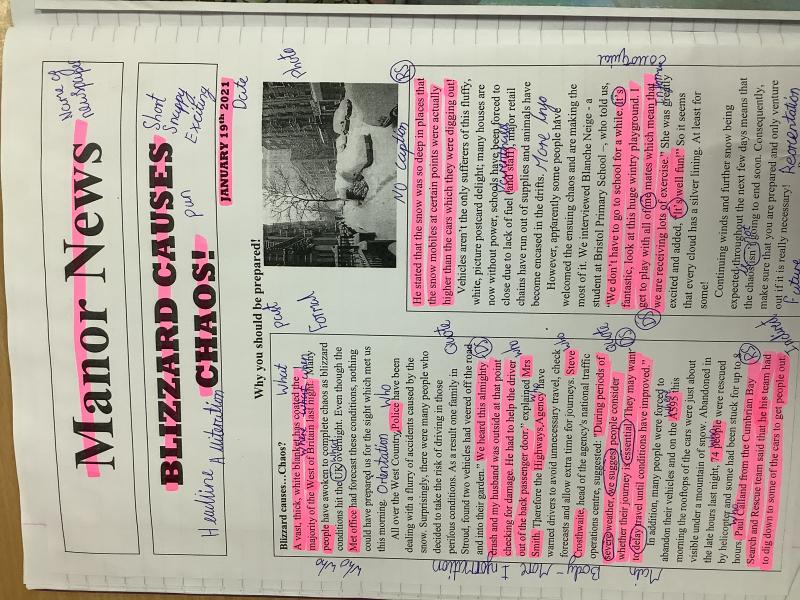 Manor News
Name of
newspaper
BLIZZARD CAUSES
CHAOS!
Short
Snappy
Exciting
pun
Headline
Alliteration
JANUARY 19th 2021
Date
Why you should be prepared!
photo
NO Caption
What
past
Formal
Blizzard causes…Chaos?
A vast, thick, white blanket has coated the
majority of the West of Britain last night. Many
people have awoken to complete chaos as blizzard
conditions hit the UK overnight. Even though the
Met office had forecast these conditions, nothing
could have prepared us for the sight which met us
this morning.
Orientation
Who
All over the West Country, Police have been
dealing with a flurry of accidents caused by the
snow. Surprisingly, there were many people who
decided to take the risk of driving in those
perilous conditions. As a result one family in
Stroud, found two vehicles had veered off the road
and into their garden." We heard this almighty
crash and my husband was outside at that point
checking for damage. He had to help the driver
out of the back passenger door." explained Mrs
Smith. Therefore the Highways Agency have
warned drivers to avoid unnecessary travel, check
forecasts and allow extra time for journeys. Steve
Crosthwaite, head of the agency's national traffic
operations centre, suggested: "During periods of
severe weather, we suggest people consider
whether their journey is essential. They may want
to delay travel until conditions have improved."
In addition, many people were forced to
abandon their vehicles and on the A595 this
morning the rooftops of the cars were just about
visible under a mountain of snow. Abandoned in
the late hours last night, 74 people were rescued
by helicopter and some had been stuck for up to 8
hours. Paul Calland from the Cumbrian Bay
Search and Rescue team said that he his team had
to dig down to some of the cars to get people out.
Quote
who
who
quote
DS
RS
Main
Body - More Information
He stated that the snow was so deep in places that
the snow mobiles at certain points were actually
higher than the cars which they were digging out!
Vehicles aren't the only sufferers of this fluffy,
white, picture postcard delight; many houses are
now without power, schools have been forced to
close due to lack of fuel (and staff), major retail
chains have run out of supplies and animals have
become encased in the drifts.
More info
However, apparently some people have
welcomed the ensuing chaos and are making the
most of it. We interviewed Blanche Neige - a
student at Bristol Primary School –, who told us,
"We don't have to go to school for a while. It's
fantastic, look at this huge wintry playground. I
get to play with all of me mates which mean that
we are receiving lots of exercise." She was greatly
excited and added, "It's well fun!" So it seems
that every cloud has a silver lining. At least for
some!
Continuing winds and further snow being
expected throughout the next few days means that
the chaos isn't going to end soon. Consequently,
make sure that you are prepared and only venture
out if it is really necessary!
RS
DS
Colloquial
Reorientation
Future